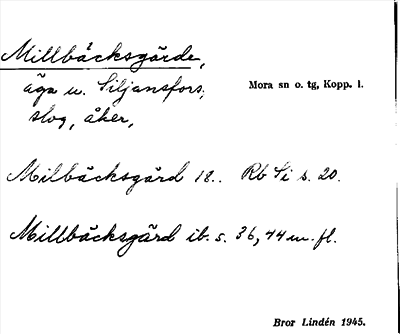 Millbäcksgärde,
äga u. Siljansfors,
Mora sn o. tg, Kopp. l.
slog, åker,
Milbäcksgärd 18.. Rb Si s. 20.
Millbäcksgärd ib. s. 36, 44 m. fl.
Bror Lindén 1945.